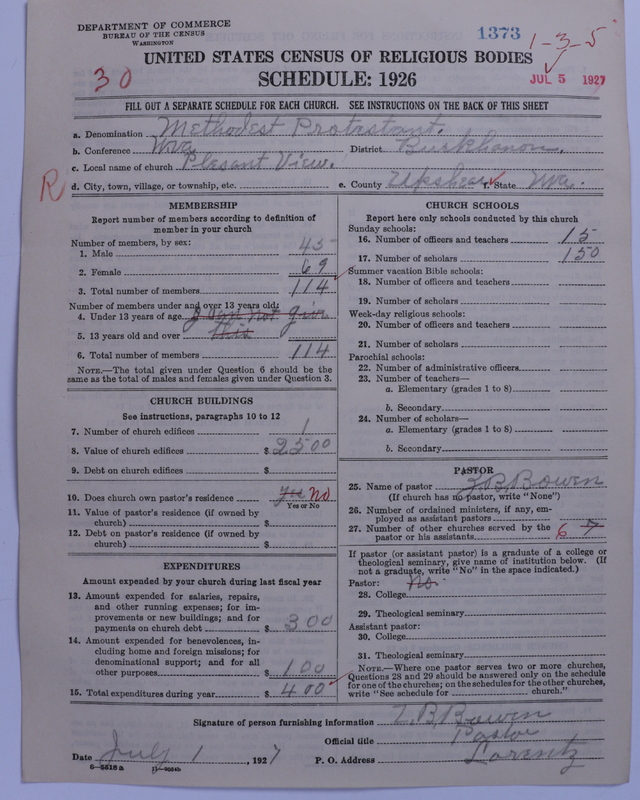 DEPARTMENT OF COMMERCE
BUREAU OF THE CENSUS
WASHINGTON
1373
1-3-5
UNITED STATES CENSUS OF RELIGIOUS BODIES
JUL 5 1927
30
SCHEDULE: 1926
FILL OUT A SEPARATE SCHEDULE FOR EACH CHURCH. SEE INSTRUCTIONS ON THE BACK OF THIS SHEET
a. Denomination Methodest Protestant.
b. Conference Wva District Buckhanon.
c. Local name of church Plesant View.
R d. City, town, village, or township, etc. e. County Upshear f. State Wva.
MEMBERSHIP
Report number of members according to definition of member in your church
Number of members, by sex:
1. Male 45
2. Female 69
3. Total number of members 114
Number of members under and over 13 years old:
4. Under 13 years of age I Dont not give
5. 13 years old and over this
6. Total number of members 114
NOTE.—The total given under Question 6 should be the same as the total of males and females given under Question 3.
CHURCH BUILDINGS
See instructions, paragraphs 10 to 12
7. Number of church edifices 1
8. Value of church edifices $ 2500
9. Debt on church edifices $
10. Does church own pastor's residence yes no
Yes or No
11. Value of pastor's residence (if owned by church) $
12. Debt on pastor's residence (if owned by church) $
EXPENDITURES
Amount expended by your church during last fiscal year
13. Amount expended for salaries, repairs, and other running expenses; for improvements or new buildings; and for payments on church debt $ 300
14. Amount expended for benevolences, including home and foreign missions; for denominational support; and for all other purposes $ 100
15. Total expenditures during year $ 400
CHURCH SCHOOLS
Report here only schools conducted by this church
Sunday schools:
16. Number of officers and teachers 15
17. Number of scholars 150
Summer vacation Bible schools:
18. Number of officers and teachers
19. Number of scholars
Week-day religious schools:
20. Number of officers and teachers
21. Number of scholars
Parochial schools:
22. Number of administrative officers
23. Number of teachers—
a. Elementary (grades 1 to 8)
b. Secondary
24. Number of scholars—
a. Elementary (grades 1 to 8)
b. Secondary
PASTOR
25. Name of pastor Z. B. Bowen
(If church has no pastor, write "None")
26. Number of ordained ministers, if any, employed as assistant pastors
27. Number of other churches served by the pastor or his assistants 6 7
If pastor (or assistant pastor) is a graduate of a college or theological seminary, give name of institution below. (If not a graduate, write "No" in the space indicated.)
Pastor: No.
28. College
29. Theological seminary
Assistant pastor:
30. College
31. Theological seminary
NOTE.—Where one pastor serves two or more churches, Questions 28 and 29 should be answered only on the schedule for one of the churches; on the schedules for the other churches, write "See schedule for church."
Signature of person furnishing information Z. B. Bowen
Official title Pastor
Date July 1, 1927 P. O. Address Lorentz